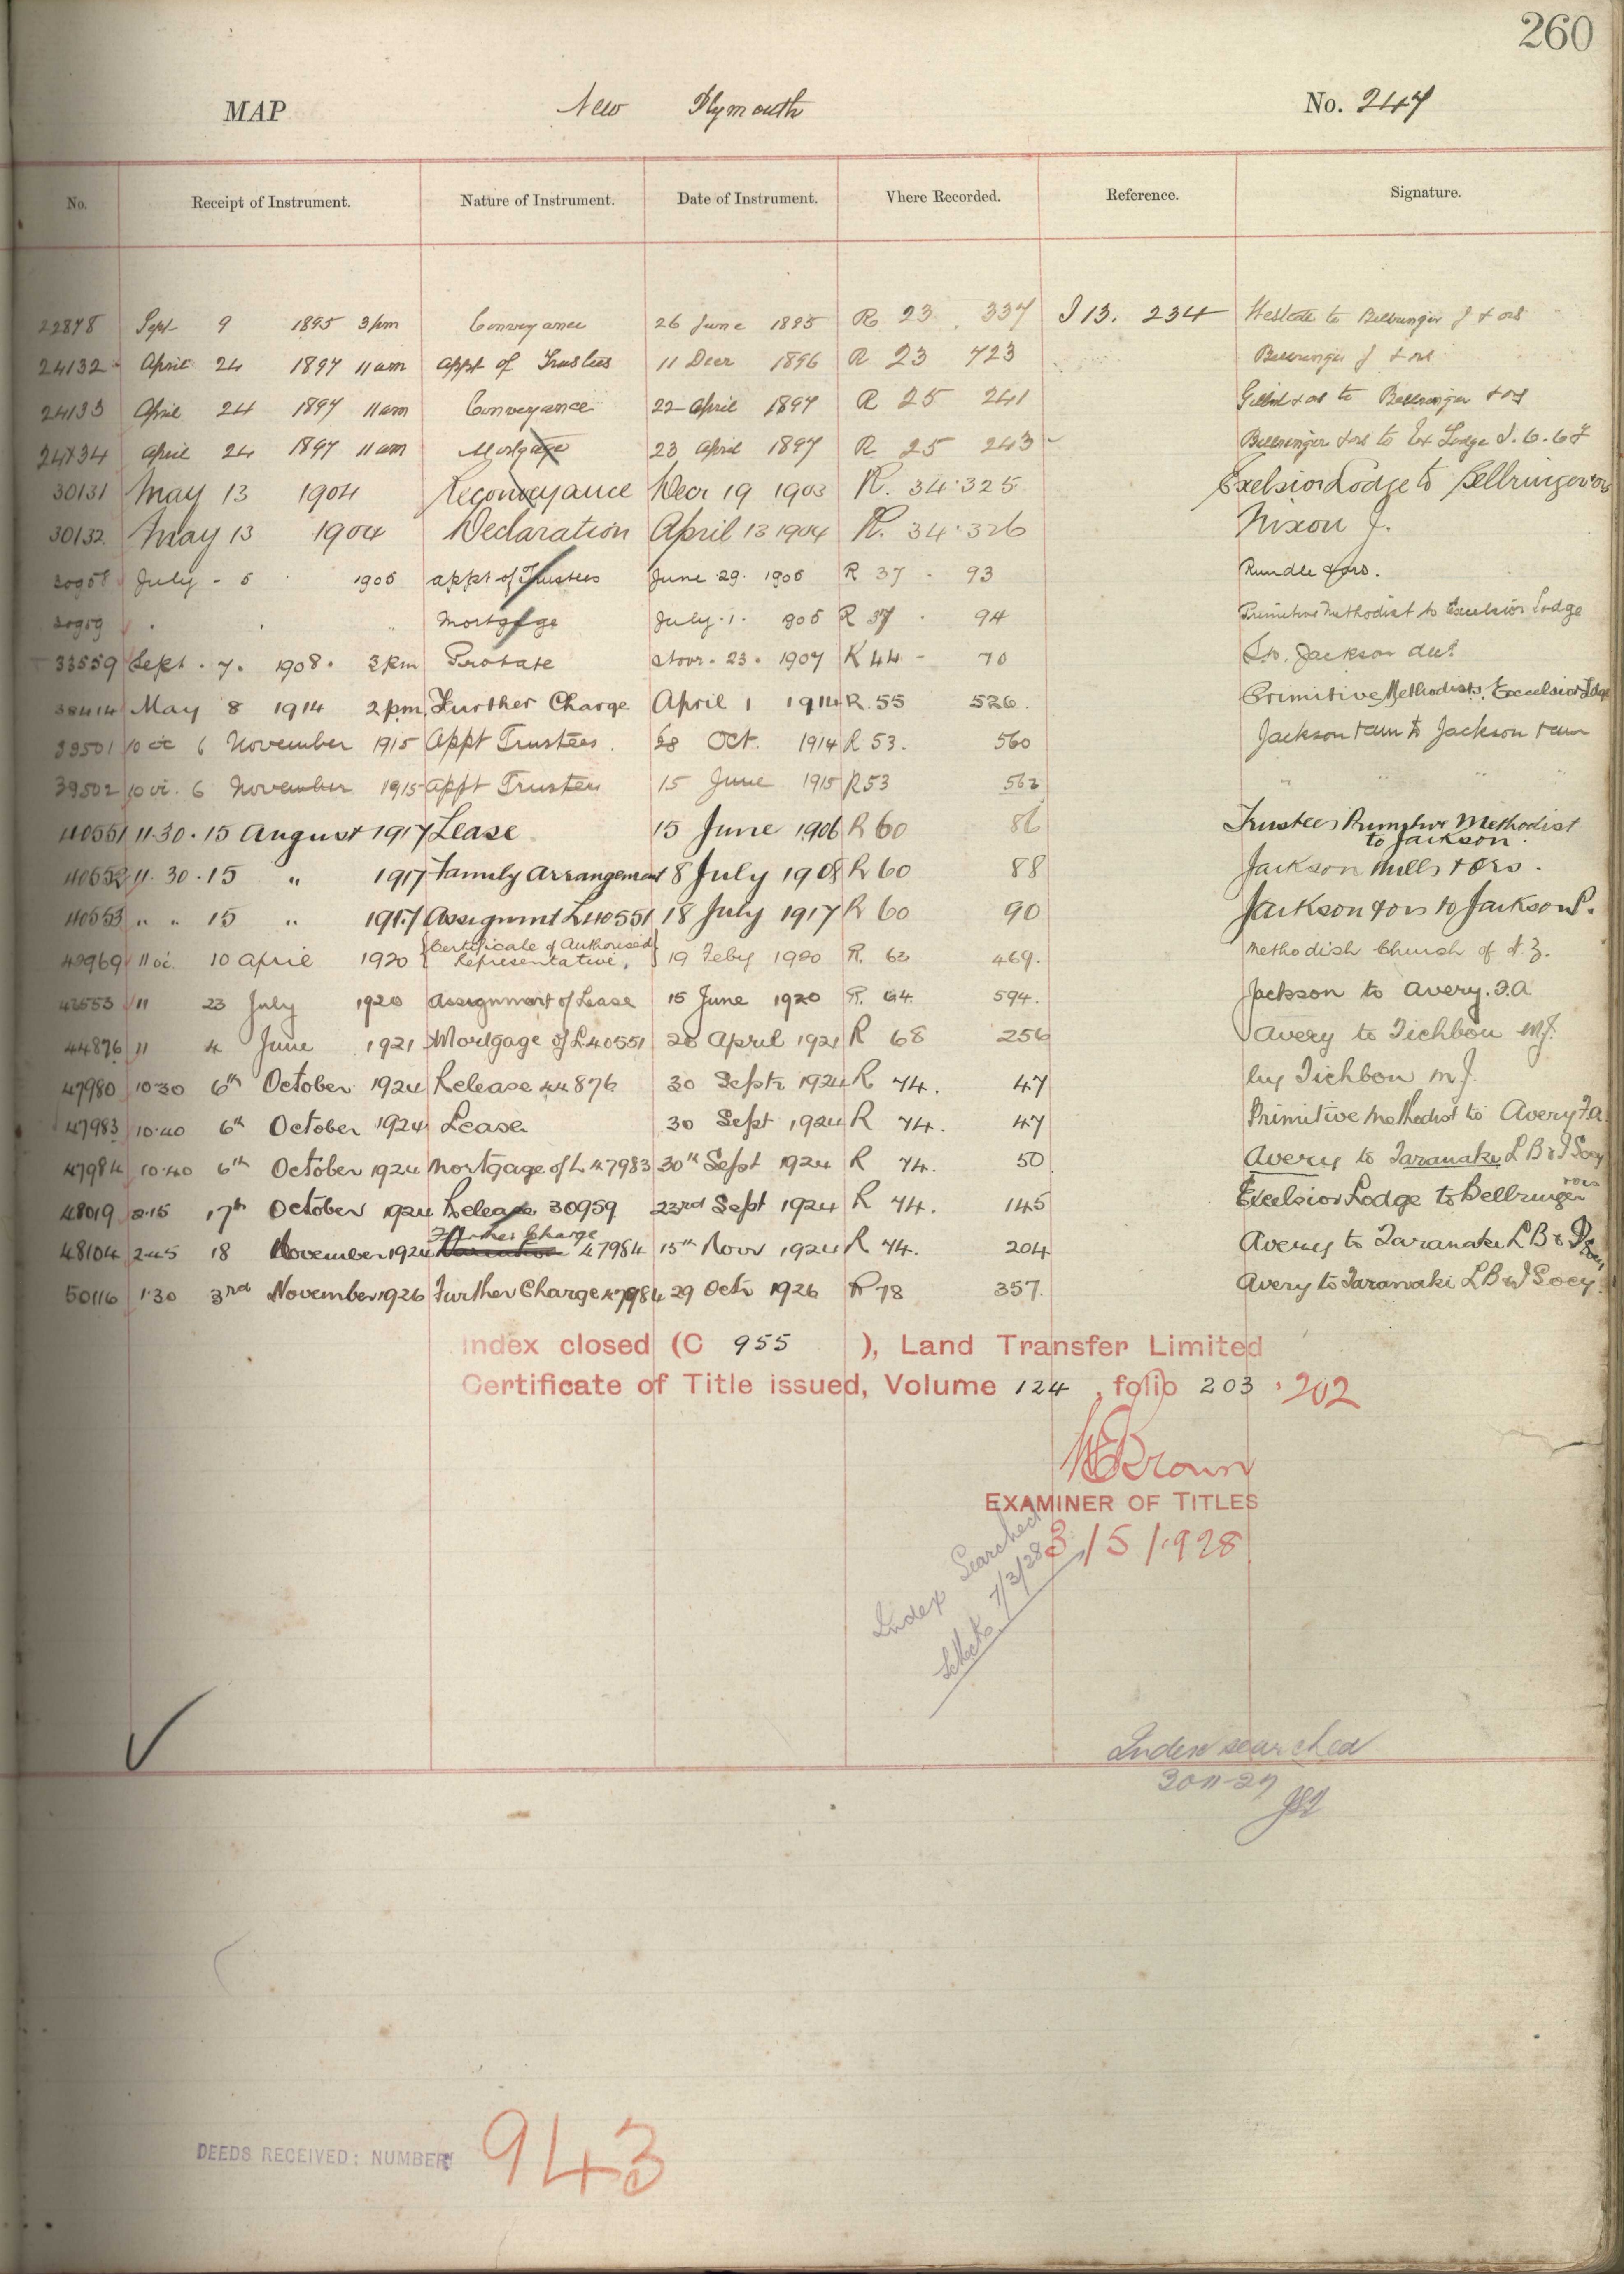 260
MAP New Plymouth No. 247
No. Receipt of Instrument. Nature of Instrument. Date of Instrument. Where Recorded. Reference. Signature.
22878 Sept 9 1895 3 pm Conveyance 26 June 1895 R 23 337 I 13. 234 to Bellringer J & ors
24132 April 24 1897 11 am Appt of Trustees 11 Decr 1896 R 23 723 Bellringer J & ors
24133 April 24 1897 11 am Conveyance 22 April 1897 R 25 241 to Bellringer & ors
24134 April 24 1897 11 am Mortgage 23 April 1897 R 25 243 Bellringer & ors to Ex Lodge
30131 May 13 1904 Reconveyance Decr 19 1903 R. 34·325 Excelsior Lodge to Bellringer & ors
30132 May 13 1904 Declaration April 13 1904 R. 34·326 Nixon J.
30958 July - 5 1905 appt of Trustees June 29. 1905 R 37 - 93 Rundle & ors.
30959 " " " Mortgage July. 1. 1905 R 37 · 94 Primitive Methodist to Excelsior Lodge
33559 Sept. 7. 1908. 3 pm Probate Novr. 23. 1907 K 44 - 70 Jackson decd
38414 May 8 1914 2 pm Further Charge April 1 1914 R. 55 526. Primitive Methodists, Excelsior Lodge
39501 10 oc 6 November 1915 Appt Trustees. 28 Oct. 1914 R 53. 560 Jackson & anr to Jackson & anr
39502 10 oc. 6 November 1915 appt Trustees 15 June 1915 R 53 562 " " " "
40551 11·30 · 15 August 1917 Lease 15 June 1906 R 60 86 Trustees Primitive Methodist
to Jackson.
40552 11·30 · 15 " 1917 Family Arrangement 8 July 1908 R 60 88 Jackson Mills & ors.
40553 " " 15 " 1917 Assignmt L 40551 18 July 1917 R 60 90 Jackson & ors to Jackson S.
42969 11 oc. 10 April 1920 {Certificate of Authorised
Representative.} 19 Feby 1920 R. 63 469. Methodist Church of N.Z.
43553 11 23 July 1920 Assignment of Lease 15 June 1920 R. 64 594. Jackson to Avery. F.A
44876 11 4 June 1921 Mortgage of L 40551 20 April 1921 R 68 256 Avery to Tichbon M.J.
47980 10·30 6th October 1924 Release 44876 30 Septr 1924 R 74. 47 by Tichbon M J.
47983 10·40 6th October 1924 Lease 30 Sept 1924 R 74. 47 Primitive Methodist to Avery F.A
47984 10·40 6th October 1924 Mortgage of L 47983 30th Sept 1924 R 74. 50 Avery to Taranaki L B & I Socy
48019 2·15 17th October 1924 Release 30959 23rd Sept 1924 R 74. 145 Excelsior Lodge to Bellringer & ors
48104 2·45 18 November 1924 Further Charge 47984 15th Novr 1924 R 74. 204 Avery to Taranaki L B & I Socy
50116 1·30 3rd November 1926 Further Charge 47984 29 Octr 1926 R 78 357. Avery to Taranaki L B & I Socy.
Index closed (C 955 ), Land Transfer Limited
Certificate of Title issued, Volume 124, folio 203 · 202
Brown
EXAMINER OF TITLES
3/5/1928
Index Searched
7/3/28
Index searched
30 11-27
DEEDS RECEIVED: NUMBER 943